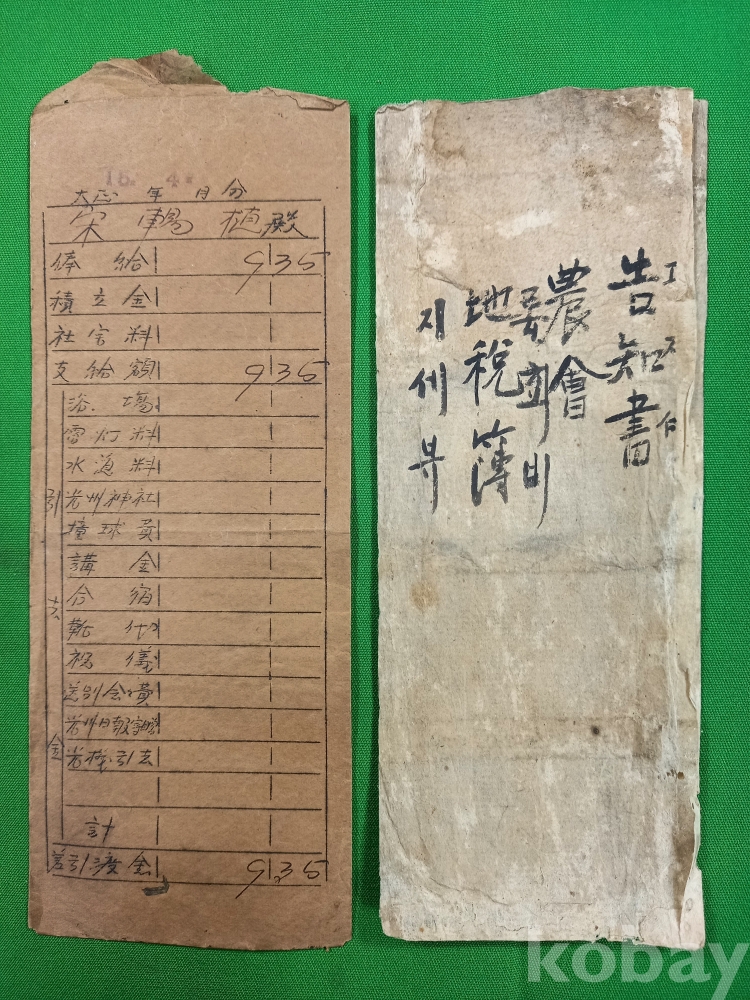 15. 4.
大正 年 月分
宋 暢 植 殿
俸給 9 35
積立金
社宅料
支給額 9 35
引去金
浴場
電灯料
水道料
光州神社
撞球員
講金
合宿
靴代
祝儀
送別会費
光州日報
引去
計
差引渡金 9 35
告知書
農會
농회비
地稅簿
지세부
kobay